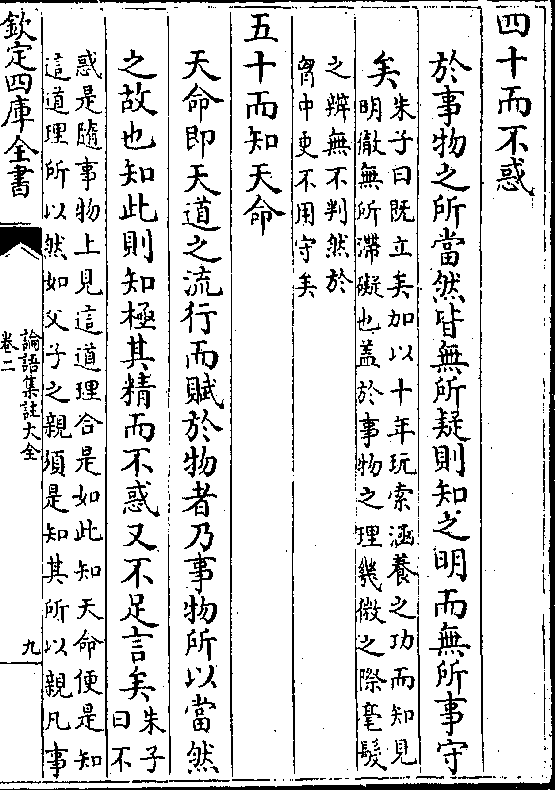 四十而不惑
於事物之所當然皆無所疑則知之明而無所事守
矣朱子曰既立矣加以十年玩索涵養之功而知見
明徹無所滯礙也蓋於事物之理幾微之際毫髮
之辨無不判然於
胷中更不用守矣
五十而知天命
天命即天道之流行而賦於物者乃事物所以當然
之故也知此則知極其精而不惑又不足言矣朱子
曰不
惑是隨事物上見這道理合是如此知天命便是知
這道理所以然如父子之親須是知其所以親凡事
欽定四庫全書
論語集註大全
卷二
九